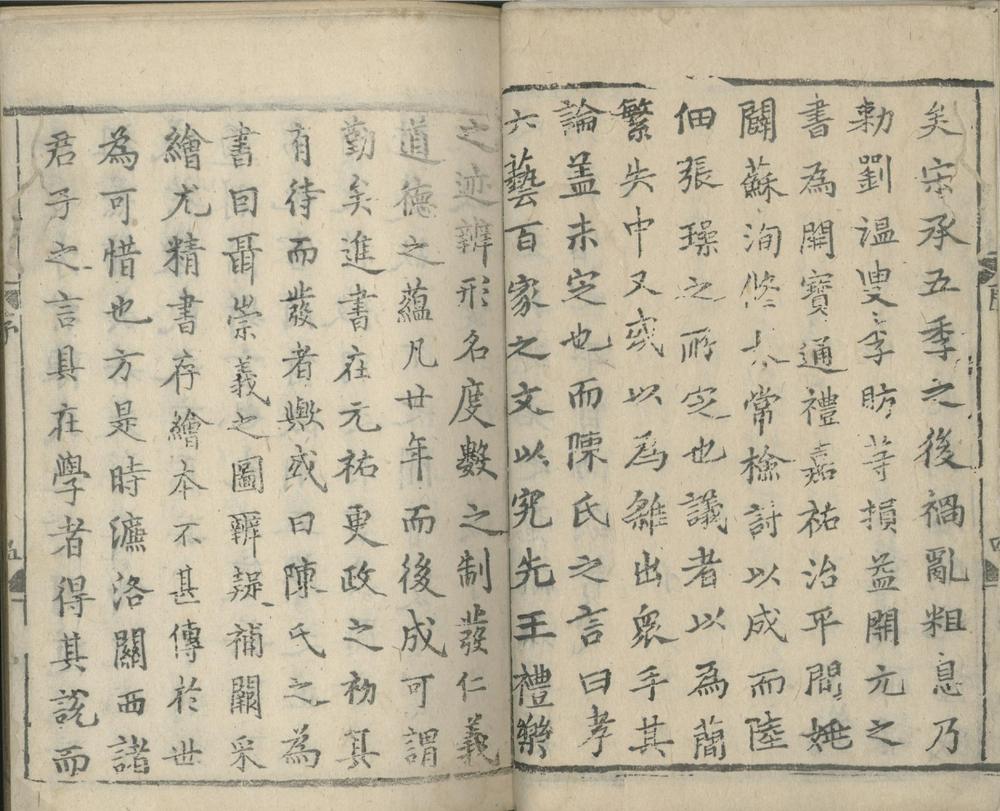 矣宋承五季之後禍亂粗息乃
勑劉温叟李昉等損益開元之
書為開寶通禮嘉祐治平間姚
闢蘇洵俢太常檢討以成而陸
佃張璪之所㝎也議者以為簡
繁失中又或以為雜出衆手其
論盖未㝎也而陳氏之言曰考
六藝百家之文以究先王禮樂
之迹辨形名度數之制發仁義
道德之藴凡廿年而後成可謂
勤矣進書在元祐更政之初其
有待而發者歟或曰陳氏之為
書因聶崇義之圖辨疑補闕采
繪尤精書存繪本不甚傳於世
為可惜也方是時濂洛關西諸
君子之言具在學者得其說而
序
五
四